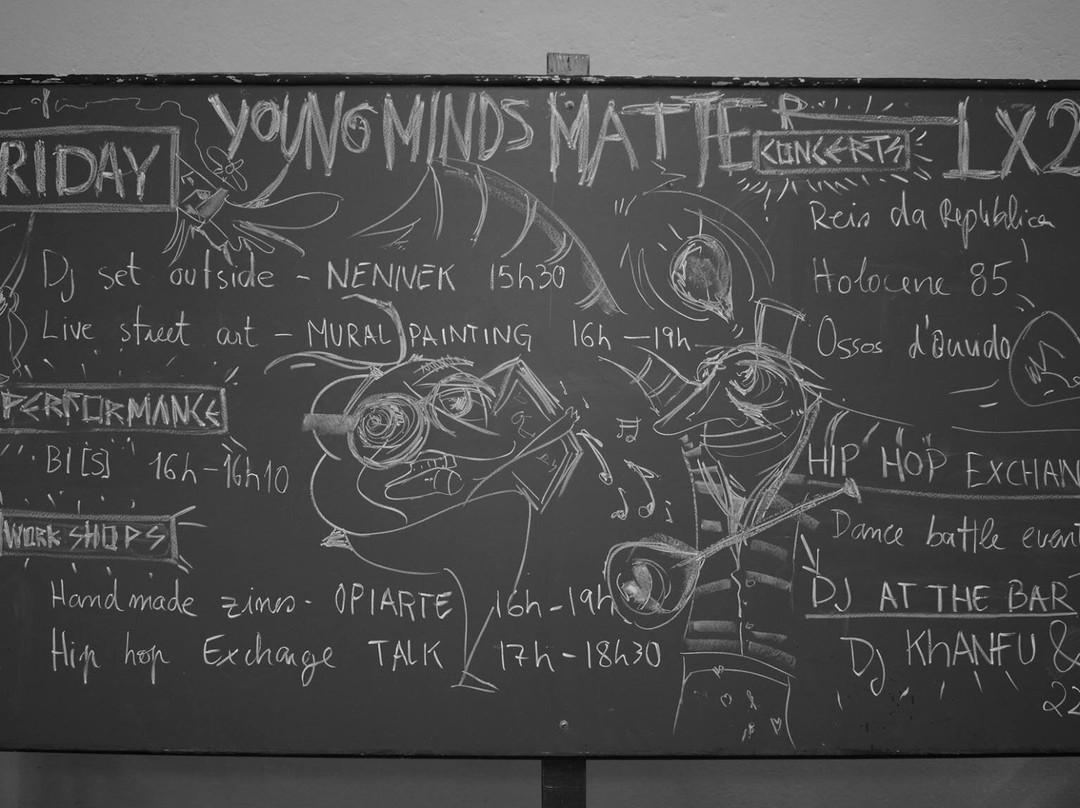 YOUNG MINDS MATTER LX2
RIDAY
Dj set outside - NENIVEK 15h30
Live street art - MURAL PAINTING 16h - 19h
PERFORMANCE
BI[S] 16h - 16h10
WORKSHOPS
Handmade zines - OPIARTE 16h - 19h
Hip hop Exchange TALK 17h - 18h30
CONCERTS
Reis da República
Holocene 85
Ossos d'Ouvido
HIP HOP EXCHAN
Dance battle event
DJ AT THE BAR
Dj KHANFU &
22